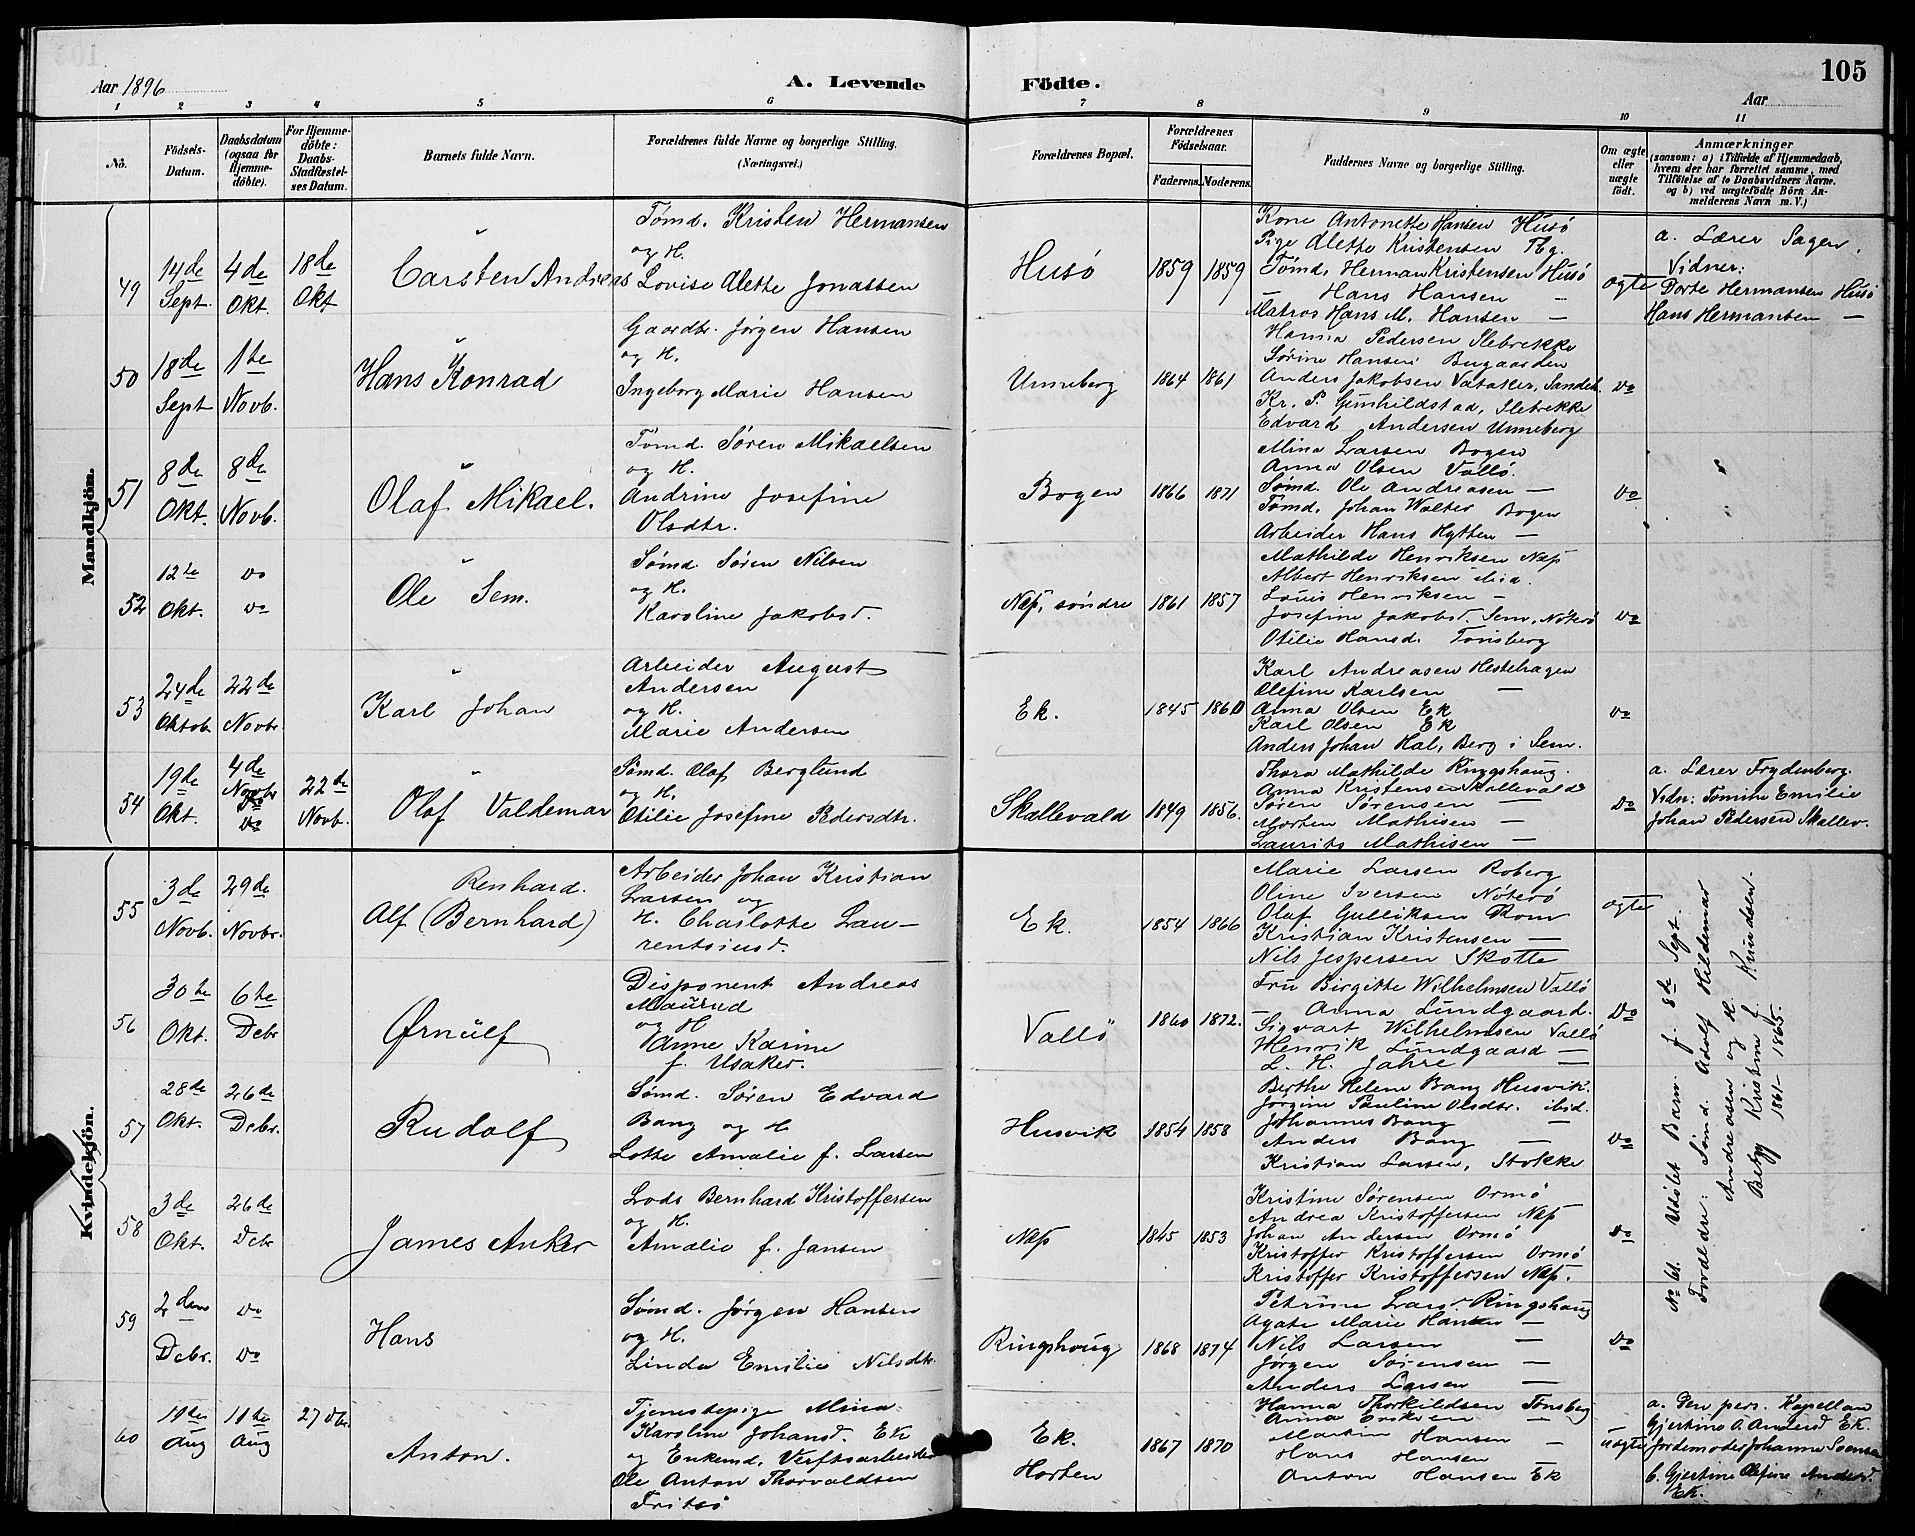 Aar 1896
A. Levende Födte.
105
Aar
1 2 3 4 5 6 7 8 9 10 11
No.
Födsels-
Datum.
Daabsdatum
(ogsaa for
Hjemme-
döbte).
For Hjemme-
döbte:
Daabs-
Stadfæstel-
ses Datum.
Barnets fulde Navn.
Forældrenes fulde Navne og borgerlige Stilling.
(Næringsvei.)
Forældrenes Bopæl.
Forældrenes
Födselsaar.
Faderens. Moderens.
Faddernes Navne og borgerlige Stilling.
Om ægte
eller
uægte
födt.
Anmærkninger
(saasom: a) i Tilfælde af Hjemmedaab,
hvem der har forrettet samme, med
Tilföielse af to Daabsvidners Navne,
og b) ved uægtefödte Börn An-
melderens Navn m. V.)
Mandkjön.
49
14de
Sept.
4de
Okt.
18de
Okt
Carsten Andreas
Tømd. Kristen Hermansen
og H.
Lovise Alette Jonassen
Husö
1859 1859
Kone Antonette Hansen Husö
Pige Alette Kristensen Tbg.
Tømd. Herman Kristensen Husö
— Hans Hansen —
Matros Hans M. Hansen —
ægte
a. Lærer Sagen.
Vidner:
Dorte Hermansen Husö
Hans Hermansen —
50
18de
Sept
1te
Novb.
Hans Konrad
Gaardbr. Jørgen Hansen
og H.
Ingeborg Marie Hansen
Unneberg
1864 1861
Hanna Pedersen Slebrekke
Sörine Hansen Bugaarden
Anders Jakobsen Vataker, Sandeh.
Kr. P. Gunhildstad, Slebrekke
Edvard Andersen Unneberg
do
51
8de
Okt.
8de
Novb.
Olaf Mikael.
Tömd. Søren Mikaelsen
og H.
Andrine Josefine
Olsdtr.
Bogen
1866 1871
Mina Larsen Bogen
Anna Olsen Vallö.
Sømd. Ole Andreasen —
Tømd. Johan Walter Bogen
Arbeider Hans Hytten —
do
52
12te
Okt.
do
do
Ole Sem.
Sømd. Søren Nilsen
og H.
Karoline Jakobsd.
Næs, søndre
1861 1857
Mathilde Henriksen Næs
Albert Henriksen ibid.
Louis Henriksen —
Josefine Jakobsd. Sem, Nöterö
Otilie Hansd. Tonsberg
do
53
24de
Oktob.
22de
Novbr.
Karl Johan
Arbeider August
Andersen
og H.
Marie Andersen
Ek.
1845 1860
Karl Andreasen Hestehagen
Olefine Karlsen —
Anna Olsen Ek
Karl Olsen Ek
Anders Johan Hal, Berg i Sem.
do
54
19de
Okt.
4de
Novbr
do
22de
Novb.
Olaf Valdemar
Sømd. Olaf Berglund
og H.
Otilie Josefine Pedersdtr.
Skallevald
1849 1856.
Thora Mathilde Ringshaug.
Anna Kristensen Skallevald
Søren Sörensen —
Morten Mathisen —
Laurits Mathisen —
do
a. Lærer Frydenberg.
Vidn: Tomine Emilie
Johan Pedersen Skallev.
Kvindekjön.
55
3de
Novb.
29de
Novbr.
Renhard.
Alf (Bernhard)
Arbeider Johan Kristian
Larsen og
H. Charlotte Lau-
rentsiusd.
Ek.
1854 1866
Marie Larsen Roberg
Oline Iversen Nöterö
Olaf Gulliksen Rom
Kristian Kristensen —
Nils Jespersen Skotte
ægte
56
30te
Okt.
6te
Debr
Ørnülf
Disponent Andreas
Maurud
og H
Anne Karine
f. Usaker.
Vallö
1860 1872.
Fru Birgitte Wilhelmsen Vallö
— Anna Lundgaard.
Sigvart Wilhelmsen Vallö
Henrik Lundgaard —
L. H. Jahre —
do
57
28de
Okt.
26de
Debr.
Rudolf
Sømd. Søren Edvard
Bang og H
Lotte Amalie f. Larsen
Husvik
1854 1858
Berthe Helene Bang Husvik.
Jörgine Pauline Olsdtr. ibid.
Johannes Bang —
Anders Bang —
Kristian Larsen, Stokke
do
58
3de
Okt.
26de
Debr
James Anker
Lods Bernhard Kristoffersen
og H.
Amalie f. Jansen
Næs
1845 1853
Kristine Sørensen Ormö
Andrea Kristoffersen Næs
Johan Andersen Ormö
Kristoffer Kristoffersen Ormö
Kristoffer Kristoffersen Næs.
do
59
2den
Debr.
do
do
Hans
Sømd. Jørgen Hansen
og H.
Linda Emilie Nilsdtr.
Ringshaug
1868 1874
Petrine Larsd. Ringshaug
Agate Marie Hansen —
Nils Larsen —
Jörgen Sørensen —
Anders Larsen —
do
60
11te
Aug
11te
Aug
27 Dbr.
Anton.
Tjenestepige Mina
Karoline Johansd. Ek
og Enkemd. Verftsarbeider
Ole Anton Thorvaldsen
Fritsö
Ek.
Horten
1867 1870
Hanna Thorkildsen Tonsberg
Anna Eriksen —
Martin Hansen —
Hans Hansen —
Anton Hansen Ek
uægte
a. Den pers. Kapellan
Gjertine O. Andersd Ek.
Jordemoder Johanne Svensen
b. Gjertine Olefine Andersd.
Ek.
No 61. Udöbt Barn. f. 8de Sept.
Forældre: Sømd. Adolf Hildemar
Andreasen og H.
Betzy Kristine f. Knudsen.
1861–1865.